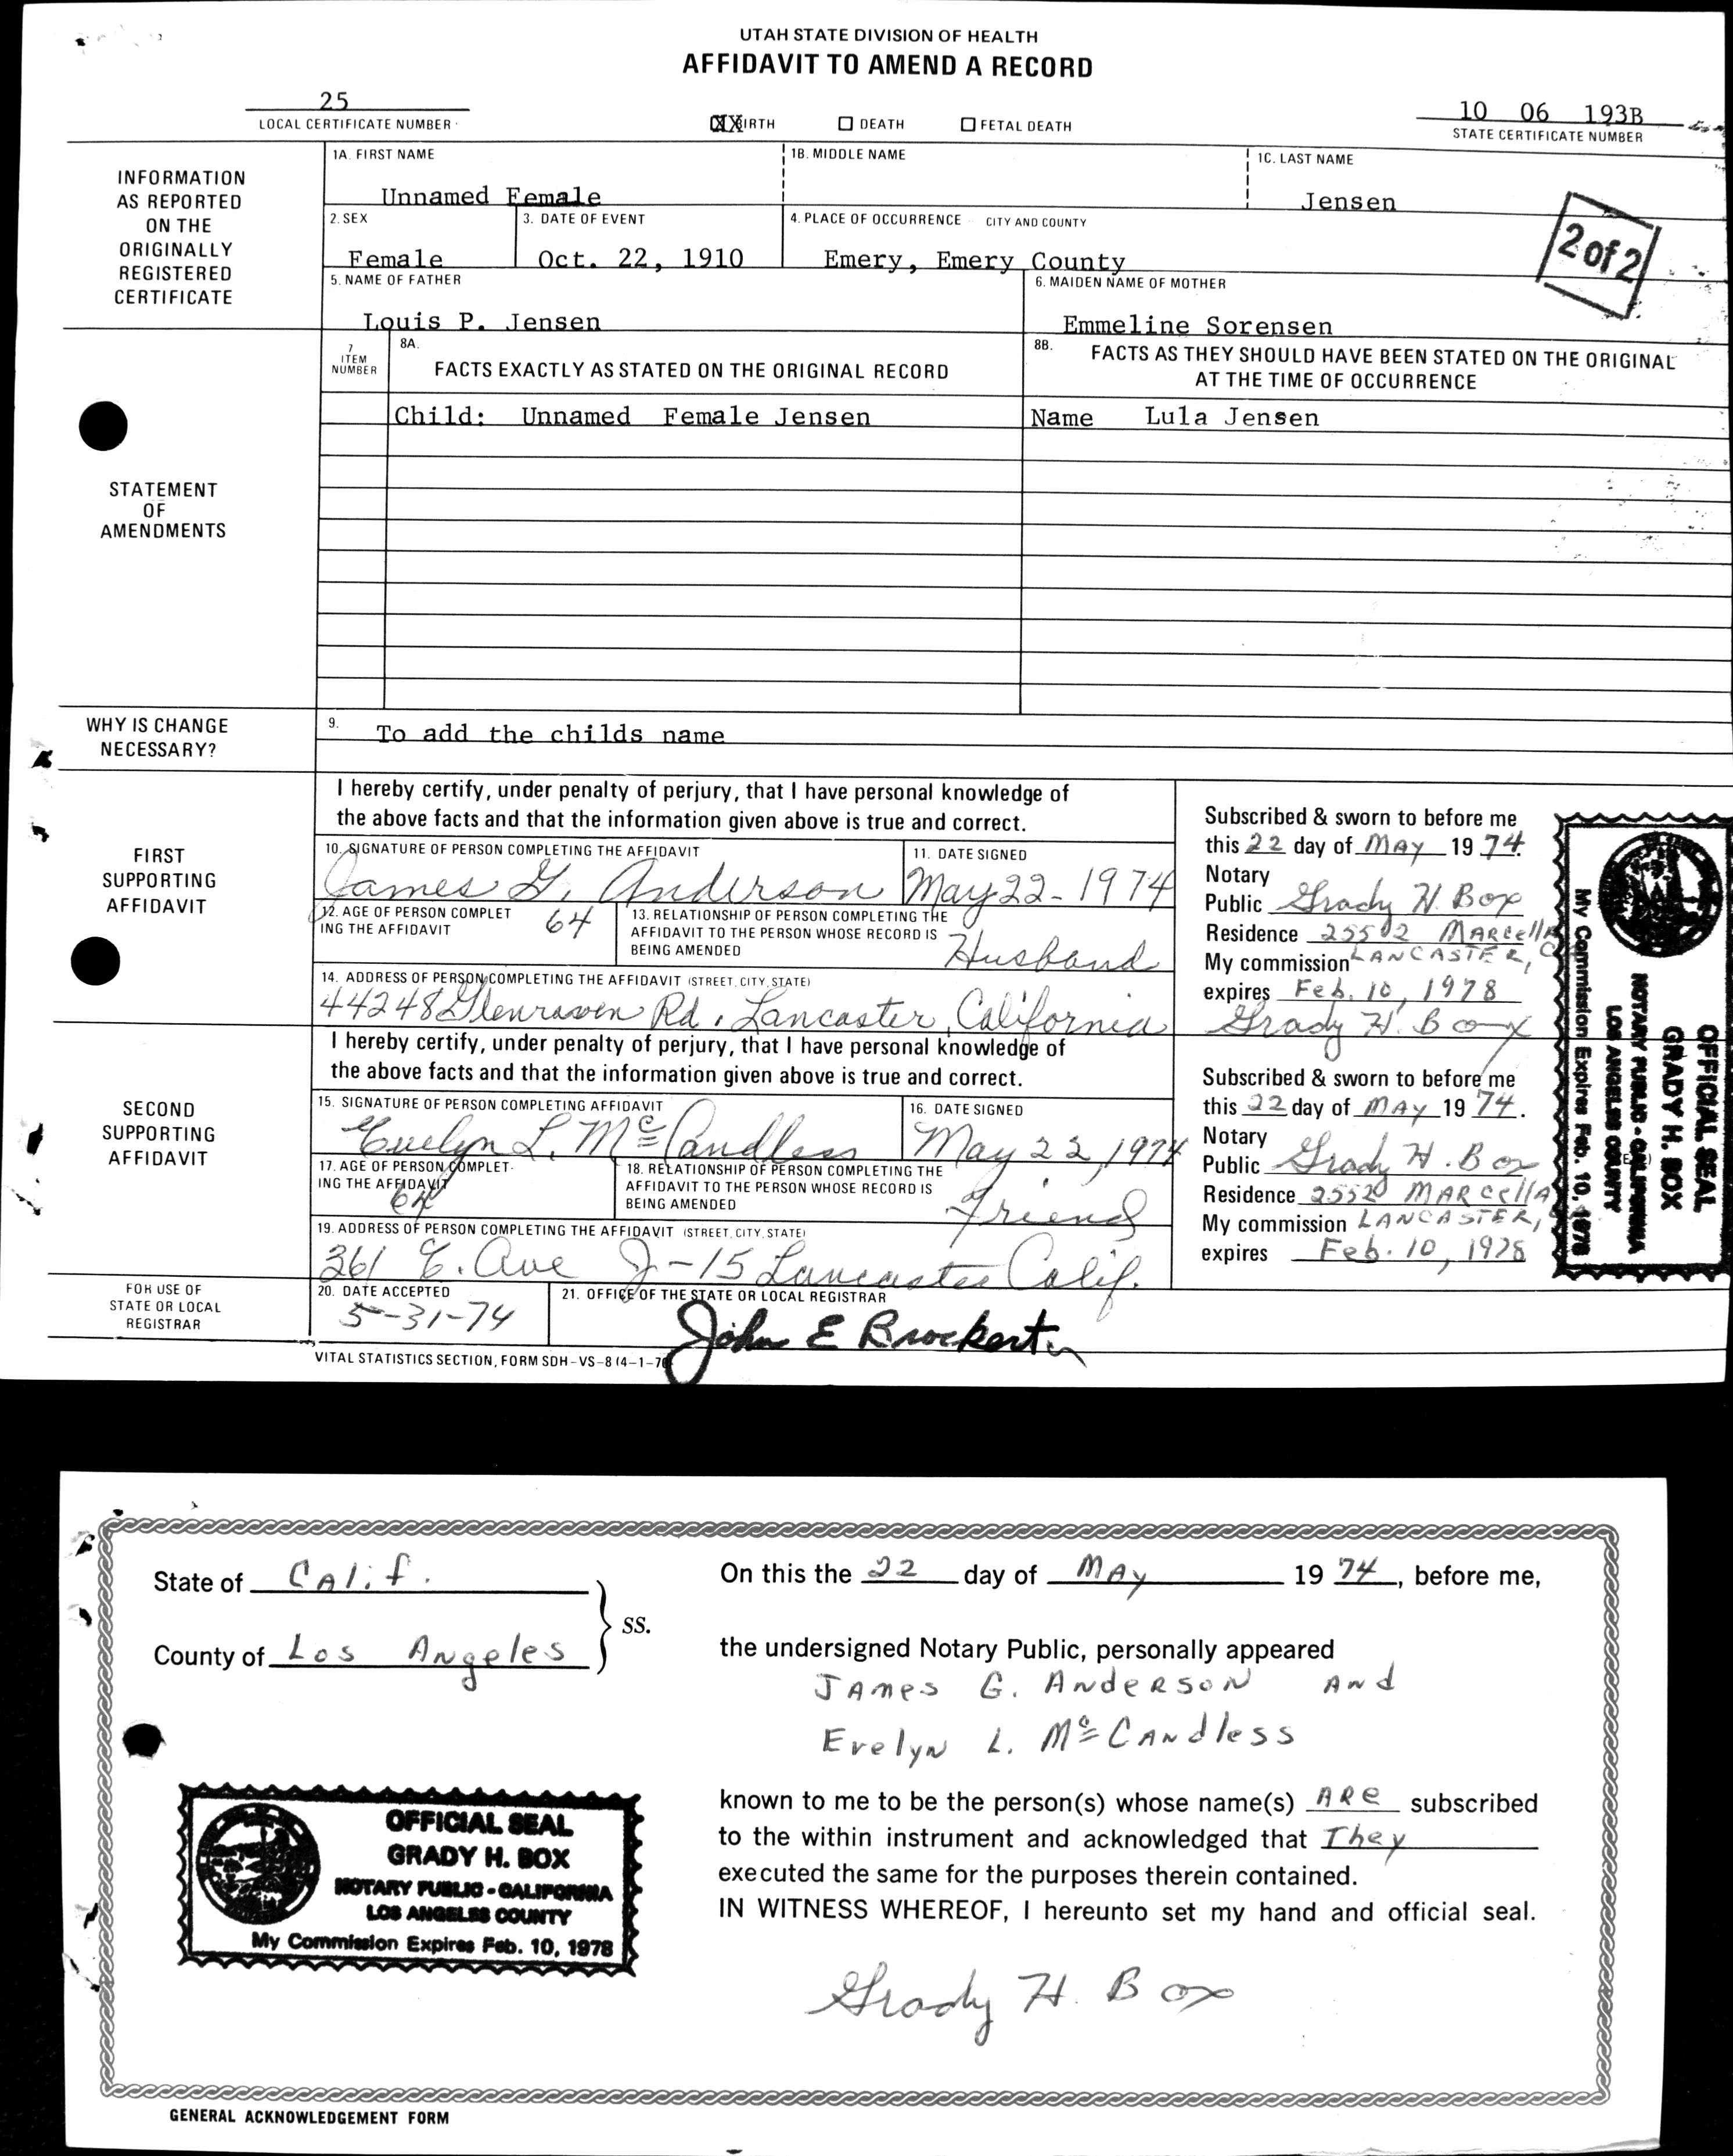 UTAH STATE DIVISION OF HEALTH
AFFIDAVIT TO AMEND A RECORD
25
LOCAL CERTIFICATE NUMBER
BIRTH DEATH FETAL DEATH
10 06 193B
STATE CERTIFICATE NUMBER
INFORMATION
AS REPORTED
ON THE
ORIGINALLY
REGISTERED
CERTIFICATE
1A. FIRST NAME
Unnamed Female
1B. MIDDLE NAME
1C. LAST NAME
Jensen
2. SEX
Female
3. DATE OF EVENT
Oct. 22, 1910
4. PLACE OF OCCURRENCE CITY AND COUNTY
Emery, Emery County
2 of 2
5. NAME OF FATHER
Louis P. Jensen
6. MAIDEN NAME OF MOTHER
Emmeline Sorensen
STATEMENT
OF
AMENDMENTS
7
ITEM
NUMBER
8A.
FACTS EXACTLY AS STATED ON THE ORIGINAL RECORD
8B.
FACTS AS THEY SHOULD HAVE BEEN STATED ON THE ORIGINAL
AT THE TIME OF OCCURRENCE
Child: Unnamed Female Jensen
Name Lula Jensen
WHY IS CHANGE
NECESSARY?
9.
To add the childs name
FIRST
SUPPORTING
AFFIDAVIT
I hereby certify, under penalty of perjury, that I have personal knowledge of
the above facts and that the information given above is true and correct.
10. SIGNATURE OF PERSON COMPLETING THE AFFIDAVIT
James G. Anderson
11. DATE SIGNED
May 22-1974
12. AGE OF PERSON COMPLET
ING THE AFFIDAVIT
64
13. RELATIONSHIP OF PERSON COMPLETING THE
AFFIDAVIT TO THE PERSON WHOSE RECORD IS
BEING AMENDED
Husband
14. ADDRESS OF PERSON COMPLETING THE AFFIDAVIT (STREET, CITY, STATE)
44248 Glenraven Rd. Lancaster, California
Subscribed & sworn to before me
this 22 day of MAY 1974.
Notary
Public Grady H. Box
Residence 25502 MARCellA
My commission LANCASTER, C
expires Feb. 10, 1978
Grady H. Box
SECOND
SUPPORTING
AFFIDAVIT
I hereby certify, under penalty of perjury, that I have personal knowledge of
the above facts and that the information given above is true and correct.
15. SIGNATURE OF PERSON COMPLETING AFFIDAVIT
Evelyn L. McCandless
16. DATE SIGNED
May 22, 1974
17. AGE OF PERSON COMPLET-
ING THE AFFIDAVIT
64
18. RELATIONSHIP OF PERSON COMPLETING THE
AFFIDAVIT TO THE PERSON WHOSE RECORD IS
BEING AMENDED
Friend
19. ADDRESS OF PERSON COMPLETING THE AFFIDAVIT (STREET, CITY, STATE)
361 E. Ave J-15 Lancaster Calif.
Subscribed & sworn to before me
this 22 day of MAY 1974.
Notary
Public Grady H. Box
Residence 2552 MARCellA
My commission LANCASTER,
expires Feb. 10, 1978
OFFICIAL SEAL
GRADY H. BOX
NOTARY PUBLIC - CALIFORNIA
LOS ANGELES COUNTY
My Commission Expires Feb. 10, 1978
FOR USE OF
STATE OR LOCAL
REGISTRAR
20. DATE ACCEPTED
5-31-74
21. OFFICE OF THE STATE OR LOCAL REGISTRAR
John E Brockert
VITAL STATISTICS SECTION, FORM SDH-VS-8 (4-1-70)
State of Calif.
County of Los Angeles
ss.
On this the 22 day of MAY 1974, before me,
the undersigned Notary Public, personally appeared
JAMES G. ANDERSON AND
Evelyn L. McCANdless
known to me to be the person(s) whose name(s) ARe subscribed
to the within instrument and acknowledged that They
executed the same for the purposes therein contained.
IN WITNESS WHEREOF, I hereunto set my hand and official seal.
Grady H. Box
OFFICIAL SEAL
GRADY H. BOX
NOTARY PUBLIC - CALIFORNIA
LOS ANGELES COUNTY
My Commission Expires Feb. 10, 1978
GENERAL ACKNOWLEDGEMENT FORM